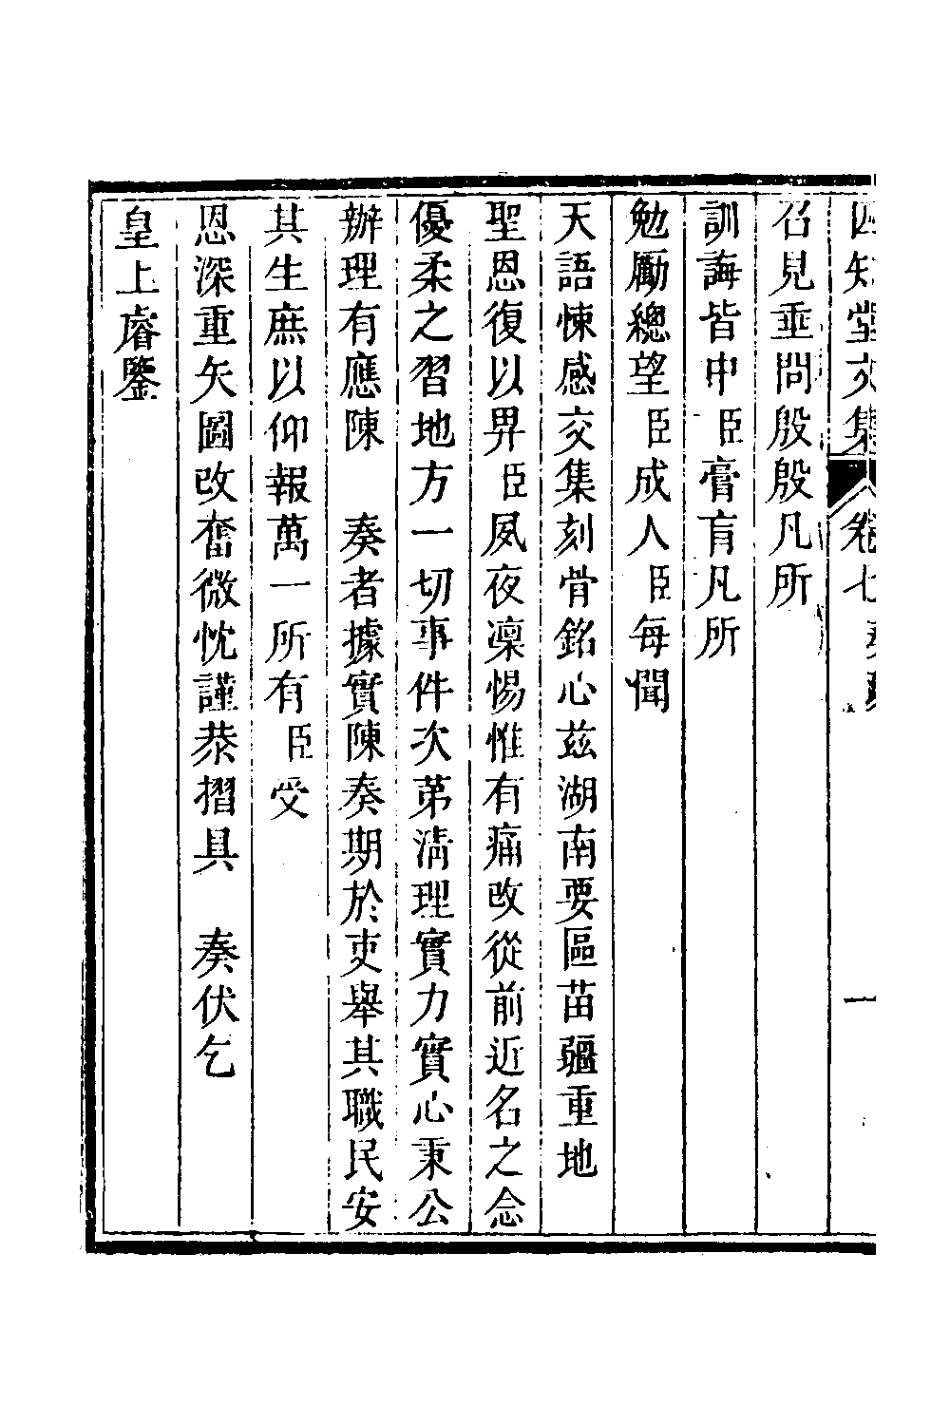 四知堂文集 卷七 一
召見垂問殷殷凡所
訓誨皆中臣膏肓凡所
勉勵總望臣成人臣每聞
天語悚感交集刻骨銘心茲湖南要區苗疆重地
聖恩復以畀臣夙夜凜惕惟有痛改從前近名之念
優柔之習地方一切事件次第清理實力實心秉公
辦理有應陳　奏者據實陳奏期於吏舉其職民安
其生庶以仰報萬一所有臣受
恩深重矢圖改奮微忱謹恭摺具　奏伏乞
皇上睿鑒